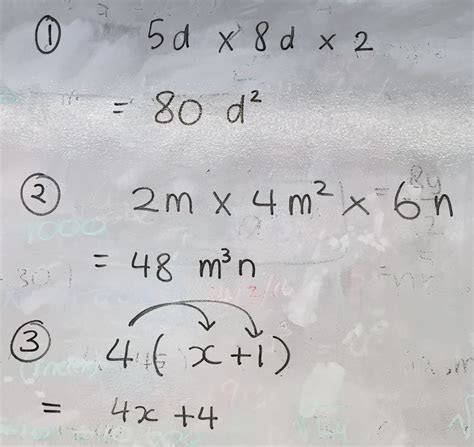 ① 5d × 8d × 2
= 80 d²
② 2m × 4m² × 6n
= 48 m³n
③ 4(x+1)
= 4x + 4